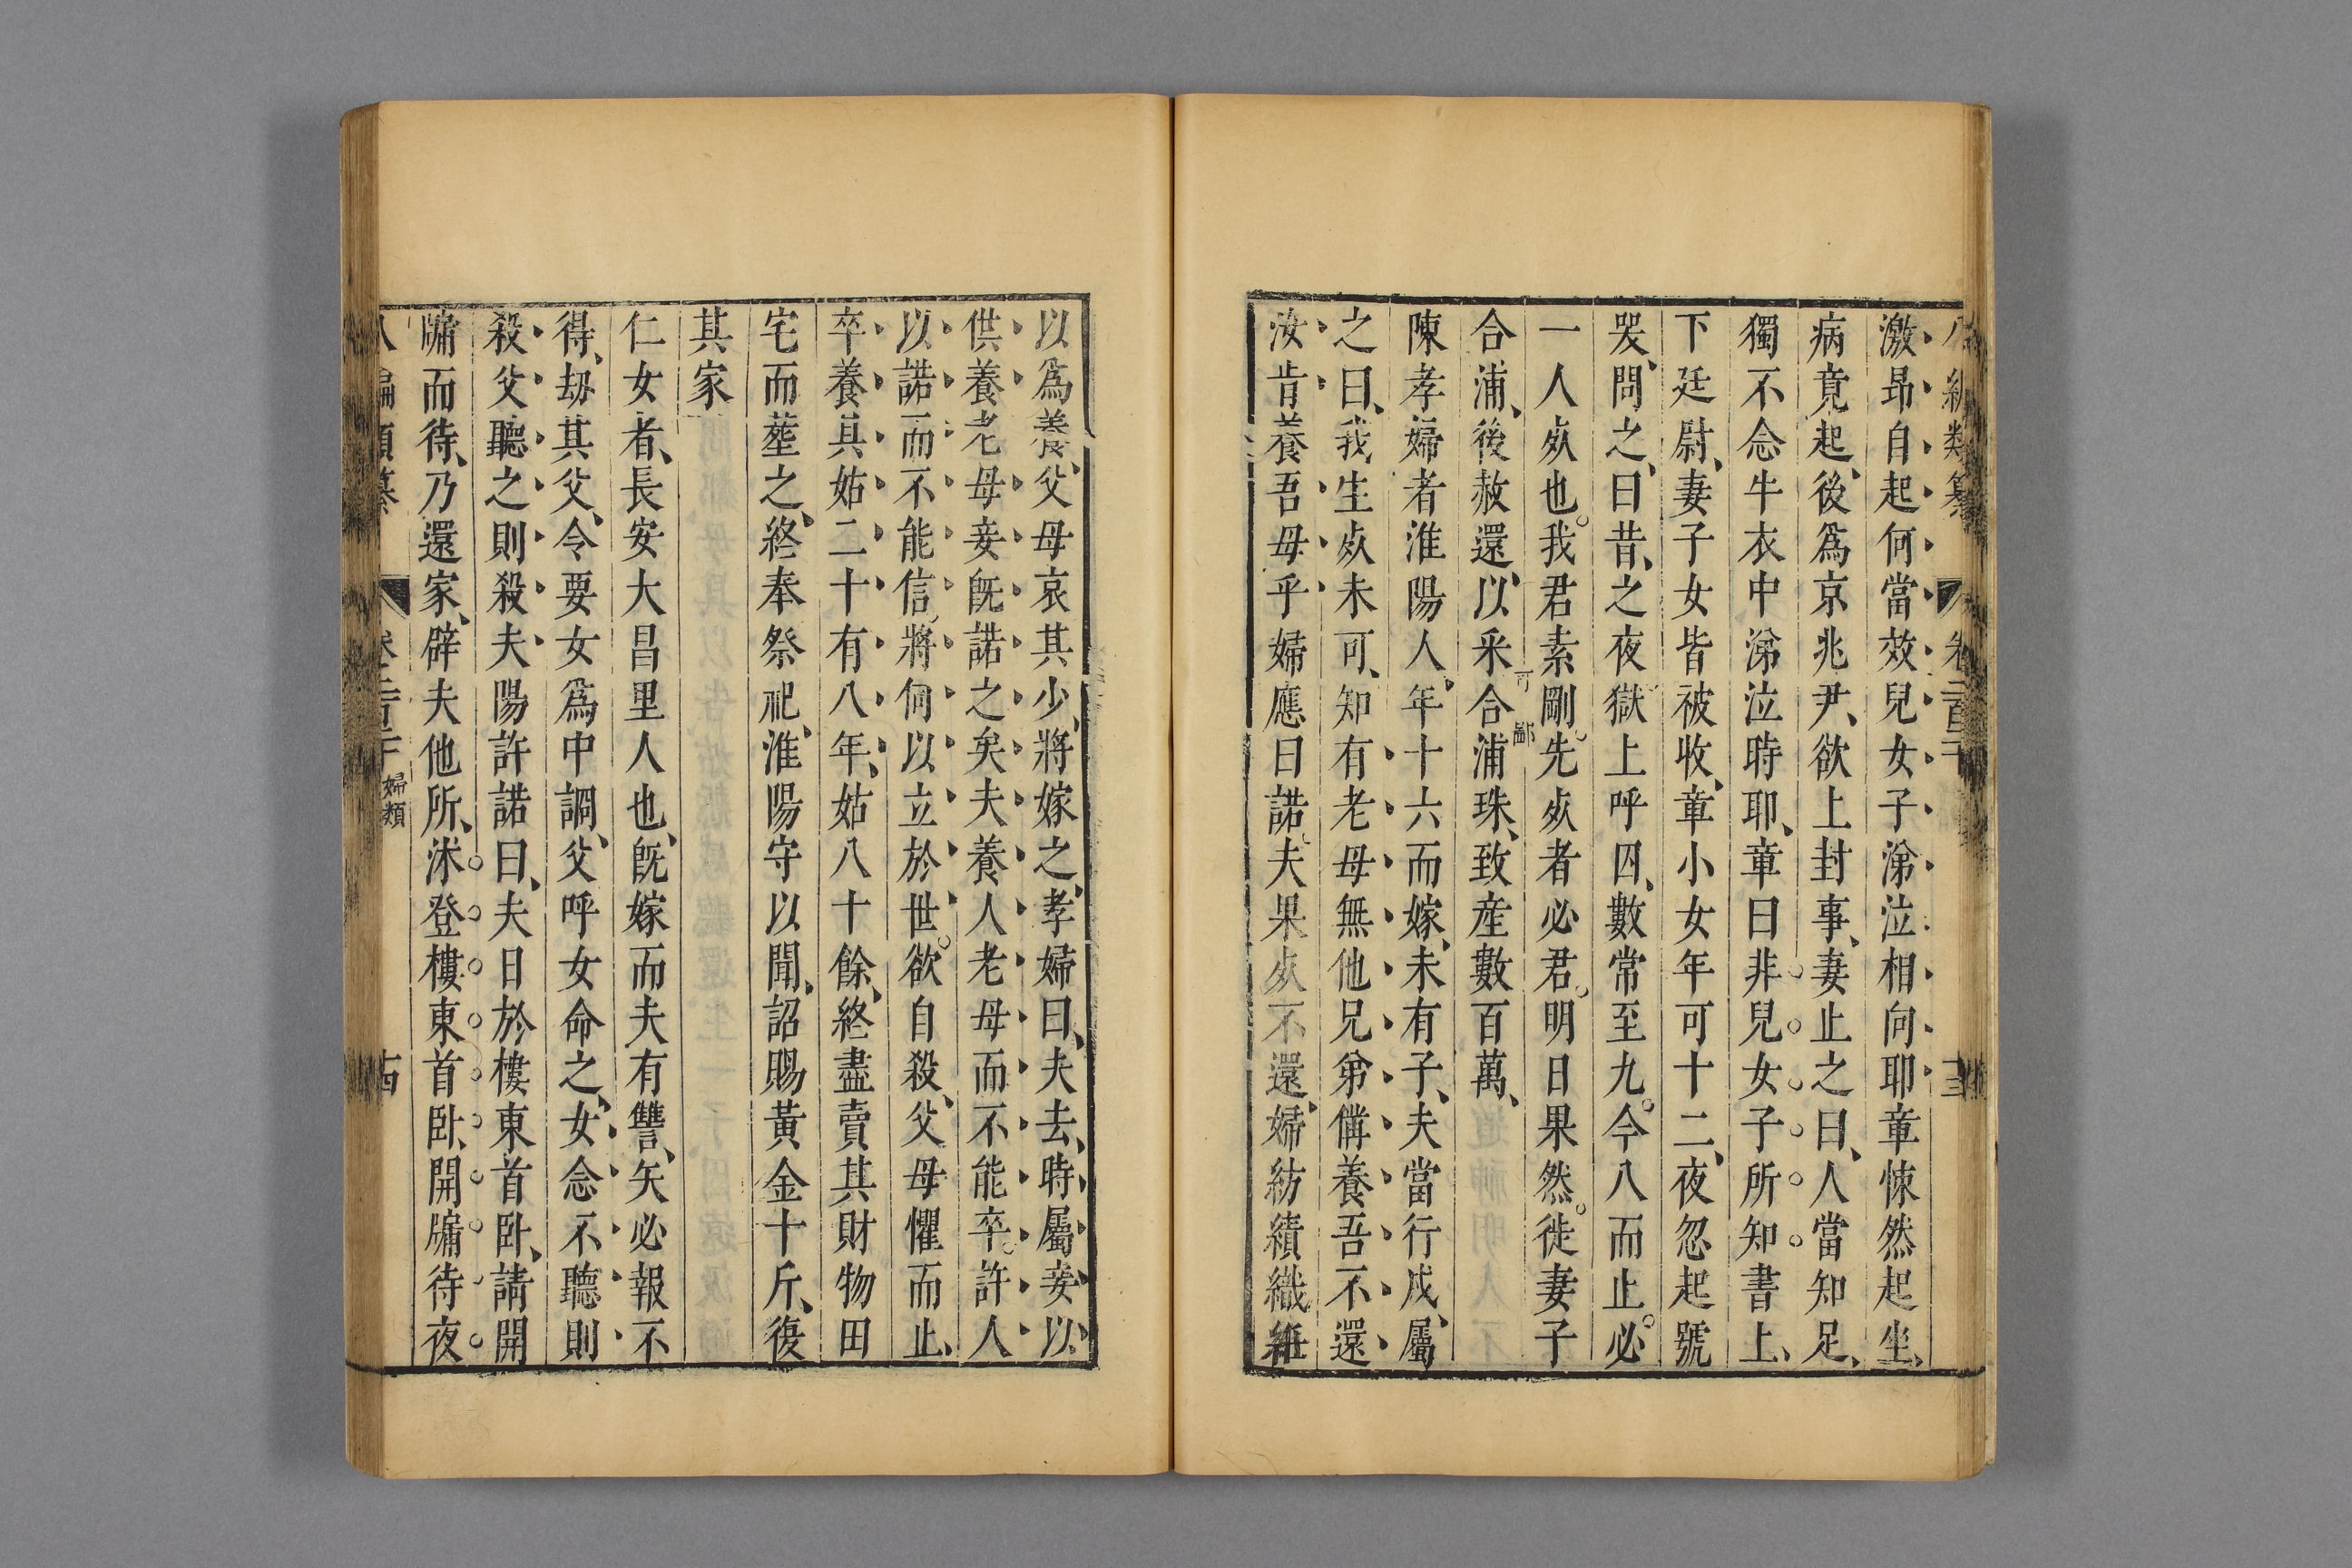 激昂自起何當效兒女子涕泣相向耶章悚然起坐、
病竟起、後爲京兆尹、欲上封事、妻止之曰、人當知足、
獨不念牛衣中涕泣時耶、章曰非兒女子所知書上、
下廷尉、妻子女皆被收、章小女年可十二、夜忽起號
哭、問之、曰昔、之夜獄上呼囚、數常至九。今八而止。必
一人歿也。我君素剛。先歿者必君。明日果然。徙妻子
合浦、後赦還、以采合浦珠、致産數百萬、
可鄙
陳孝婦者淮陽人、年十六而嫁、未有子、夫當行戍、屬
之曰、我生歿未可、知有老母無他兄弟備養吾不還
汝肯養吾母乎婦應曰諾、夫果歿不還、婦紡績織紝
以爲養、父母哀其少、將嫁之、孝婦曰、夫去、時屬妾以
供養老母妾旣諾之矣夫養人老母而不能卒。許人
以諾而不能信、將何以立於世。欲自殺、父母懼而止、
卒養其姑二十有八年、姑八十餘、終盡賣其財物田
宅而塟之、終奉祭祀、淮陽守以聞、詔賜黃金十斤、復
其家
仁女者、長安大昌里人也、旣嫁而夫有讐、矢必報不
得、刼其父、令要女爲中譋、父呼女命之、女念不聽則
殺父聽之則殺夫陽許諾曰、夫日於樓東首臥、請開
牗而待、乃還家、辟夫他所、沐登樓東首臥、開牗待夜
八編類纂
卷二百三十
婦類
十四